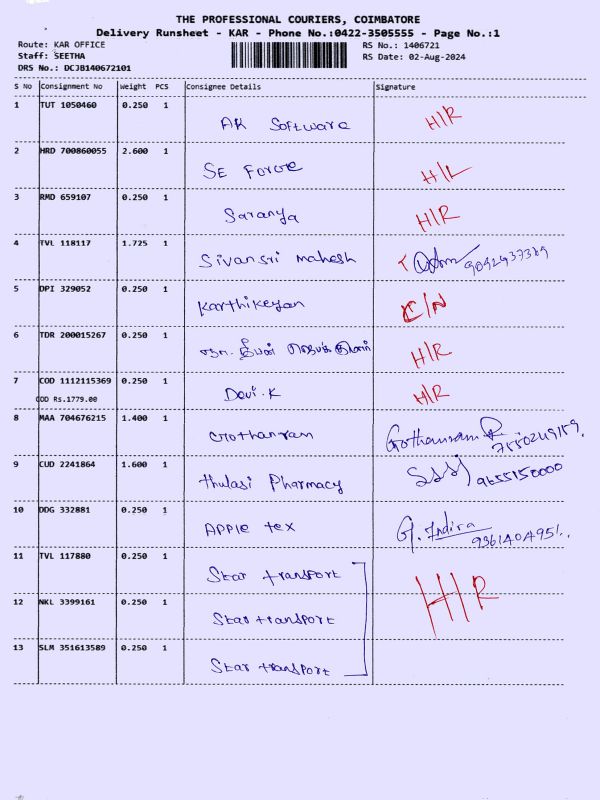 THE PROFESSIONAL COURIERS, COIMBATORE
Delivery Runsheet - KAR - Phone No.:0422-3505555 - Page No.:1
Route: KAR OFFICE RS No.: 1406721
Staff: SEETHA RS Date: 02-Aug-2024
DRS No.: DCJB140672101
S No Consignment No Weight PCS Consignee Details Signature
1 TUT 1050460 0.250 1
AK Software H/R
2 HRD 700860055 2.600 1
SE Force H/L
3 RMD 659107 0.250 1
Saranya H/R
4 TVL 118117 1.725 1
Sivansri mahesh 9092937389
5 DPI 329052 0.250 1
Karthikeyan C/N
6 TDR 200015267 0.250 1
H/R
7 COD 1112115369 0.250 1
COD Rs.1779.00 Devi.K H/R
8 MAA 704676215 1.400 1
Gothanram Gothanram 7550249159.
9 CUD 2241864 1.600 1
thulasi Pharmacy 9655150000
10 DDG 332881 0.250 1
APPle tex G. Indira
9361404951.
11 TVL 117880 0.250 1
Star transport H/R
12 NKL 3399161 0.250 1
Star transport
13 SLM 351613589 0.250 1
Star transport